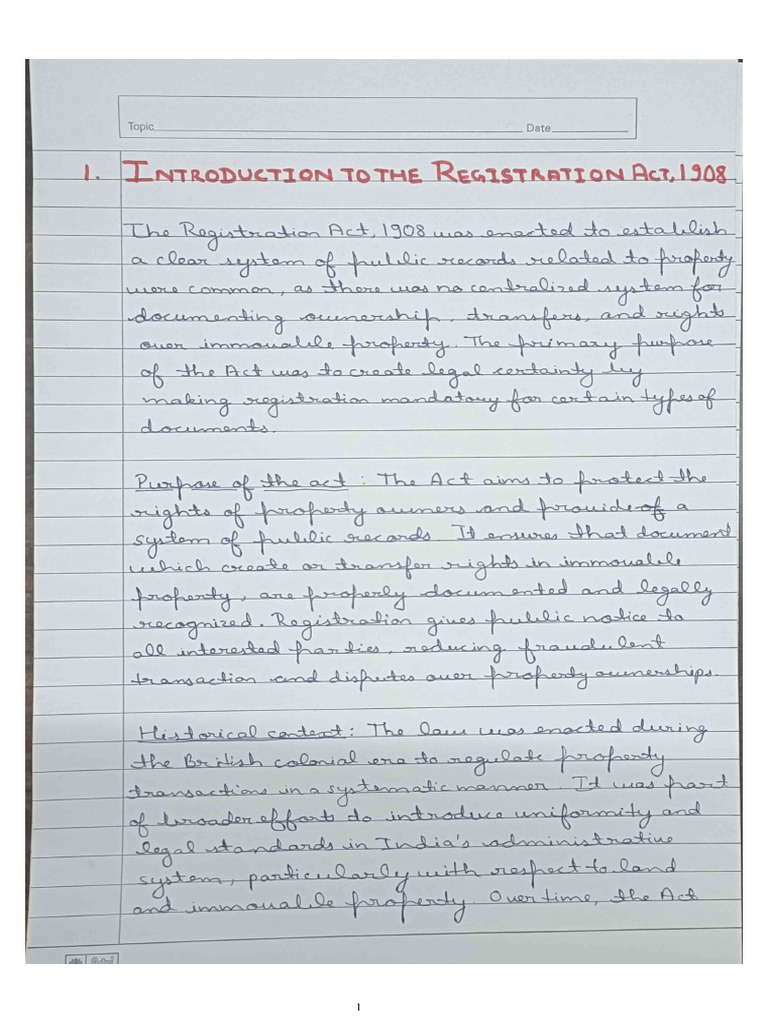 Topic Date
1. INTRODUCTION TO THE REGISTRATION ACT, 1908
The Registration Act, 1908 was enacted to establish
a clear system of public records related to property
were common, as there was no centralized system for
documenting ownership, transfers, and rights
over immovable property. The primary purpose
of the Act was to create legal certainty by
making registration mandatory for certain types of
documents.
Purpose of the act : The Act aims to protect the
rights of property owners and provide of a
system of public records. It ensures that document
which create or transfer rights in immovable
property, are properly documented and legally
recognized. Registration gives public notice to
all interested parties, reducing fraudulent
transaction and disputes over property ownerships.
Historical context : The law was enacted during
the British colonial era to regulate property
transactions in a systematic manner. It was part
of broader efforts to introduce uniformity and
legal standards in India's administrative
system, particularly with respect to land
and immovable property. Over time, the Act
1